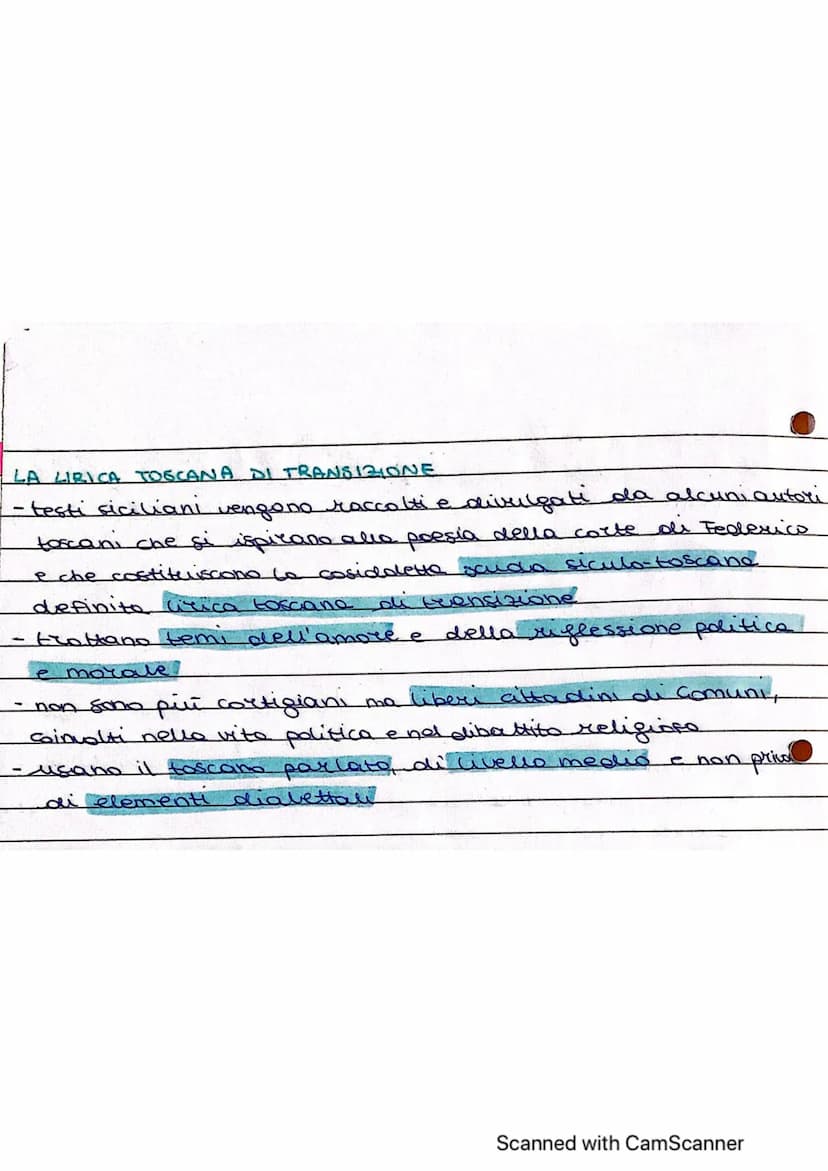 LA LIRICA TOSCANA DI TRANSIZIONE
- testi siciliani vengono raccolti e divulgati da alcuni autori
toscani che si ispirano alla poesia della corte di Federico
e che costituiscono la cosiddetta scuola siculo-toscana
definita lirica toscana di transizione
- trattano temi dell'amore e della riflessione politica
e morale
- non sono più cortigiani ma liberi cittadini di Comuni,
coinvolti nella vita politica e nel dibattito religioso
- usano il toscano parlato, di livello medio e non privo
di elementi dialettali
Scanned with CamScanner